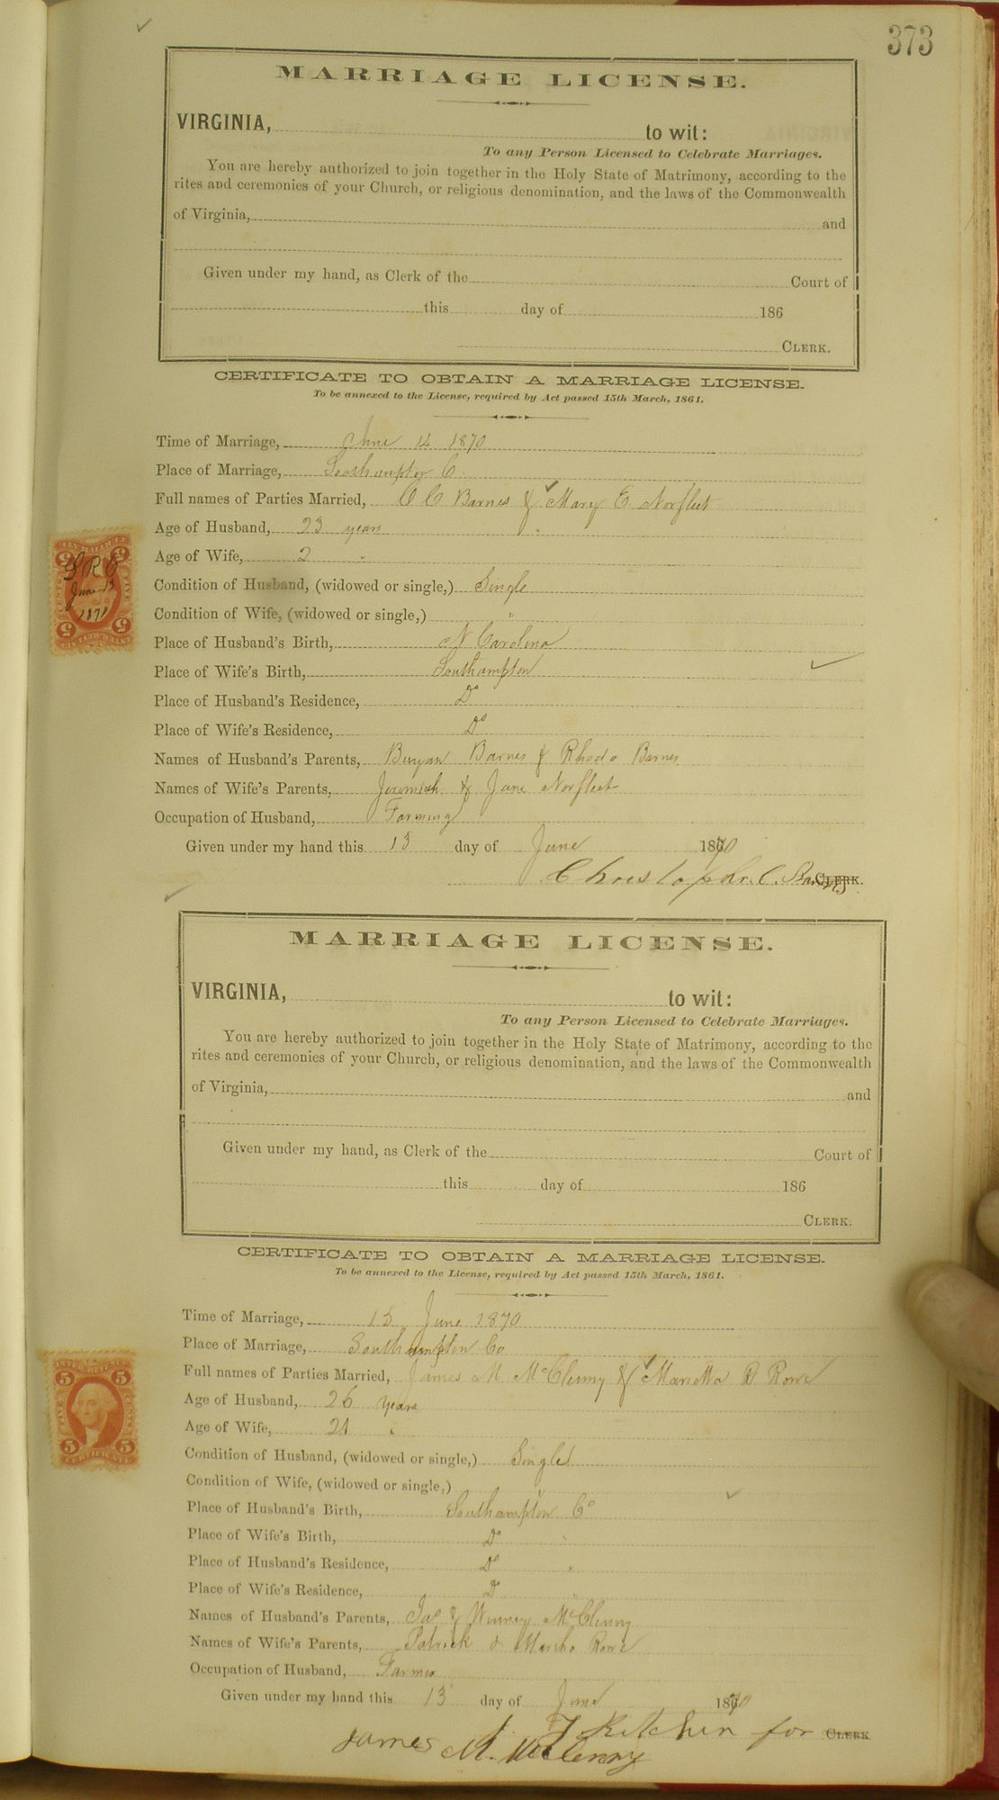 373
MARRIAGE LICENSE.
VIRGINIA, to wit:
To any Person Licensed to Celebrate Marriages.
You are hereby authorized to join together in the Holy State of Matrimony, according to the
rites and ceremonies of your Church, or religious denomination, and the laws of the Commonwealth
of Virginia, and
Given under my hand, as Clerk of the Court of
this day of 186
CLERK.
CERTIFICATE TO OBTAIN A MARRIAGE LICENSE.
To be annexed to the License, required by Act passed 15th March, 1861.
Time of Marriage, June 14 1870
Place of Marriage, Southampton C
Full names of Parties Married, C C Barnes & Mary E. Norfleet
Age of Husband, 23 years
Age of Wife, 2 "
Condition of Husband, (widowed or single,) Single
Condition of Wife, (widowed or single,) "
Place of Husband's Birth, N Carolina
Place of Wife's Birth, Southampton
Place of Husband's Residence, Do
Place of Wife's Residence, Do
Names of Husband's Parents, Barnes & Rhoda Barnes
Names of Wife's Parents, Jeremiah & Jane Norfleet
Occupation of Husband, Farming
Given under my hand this 13 day of June 1870
Christopher C. Barnes CLERK.
MARRIAGE LICENSE.
VIRGINIA, to wit:
To any Person Licensed to Celebrate Marriages.
You are hereby authorized to join together in the Holy State of Matrimony, according to the
rites and ceremonies of your Church, or religious denomination, and the laws of the Commonwealth
of Virginia, and
Given under my hand, as Clerk of the Court of
this day of 186
CLERK.
CERTIFICATE TO OBTAIN A MARRIAGE LICENSE.
To be annexed to the License, required by Act passed 15th March, 1861.
Time of Marriage, 15 June 1870
Place of Marriage, Southampton Co
Full names of Parties Married, James M. McClenny & Marietta B Rowe
Age of Husband, 26 years
Age of Wife, 21 "
Condition of Husband, (widowed or single,) Single
Condition of Wife, (widowed or single,) "
Place of Husband's Birth, Southampton Co
Place of Wife's Birth, Do "
Place of Husband's Residence, Do "
Place of Wife's Residence, Do "
Names of Husband's Parents, Jas & Winney McClenny
Names of Wife's Parents, Patrick & Martha Rowe
Occupation of Husband, Farmer
Given under my hand this 13 day of June 1870
J. J Kitchen for CLERK
James M. McClenny